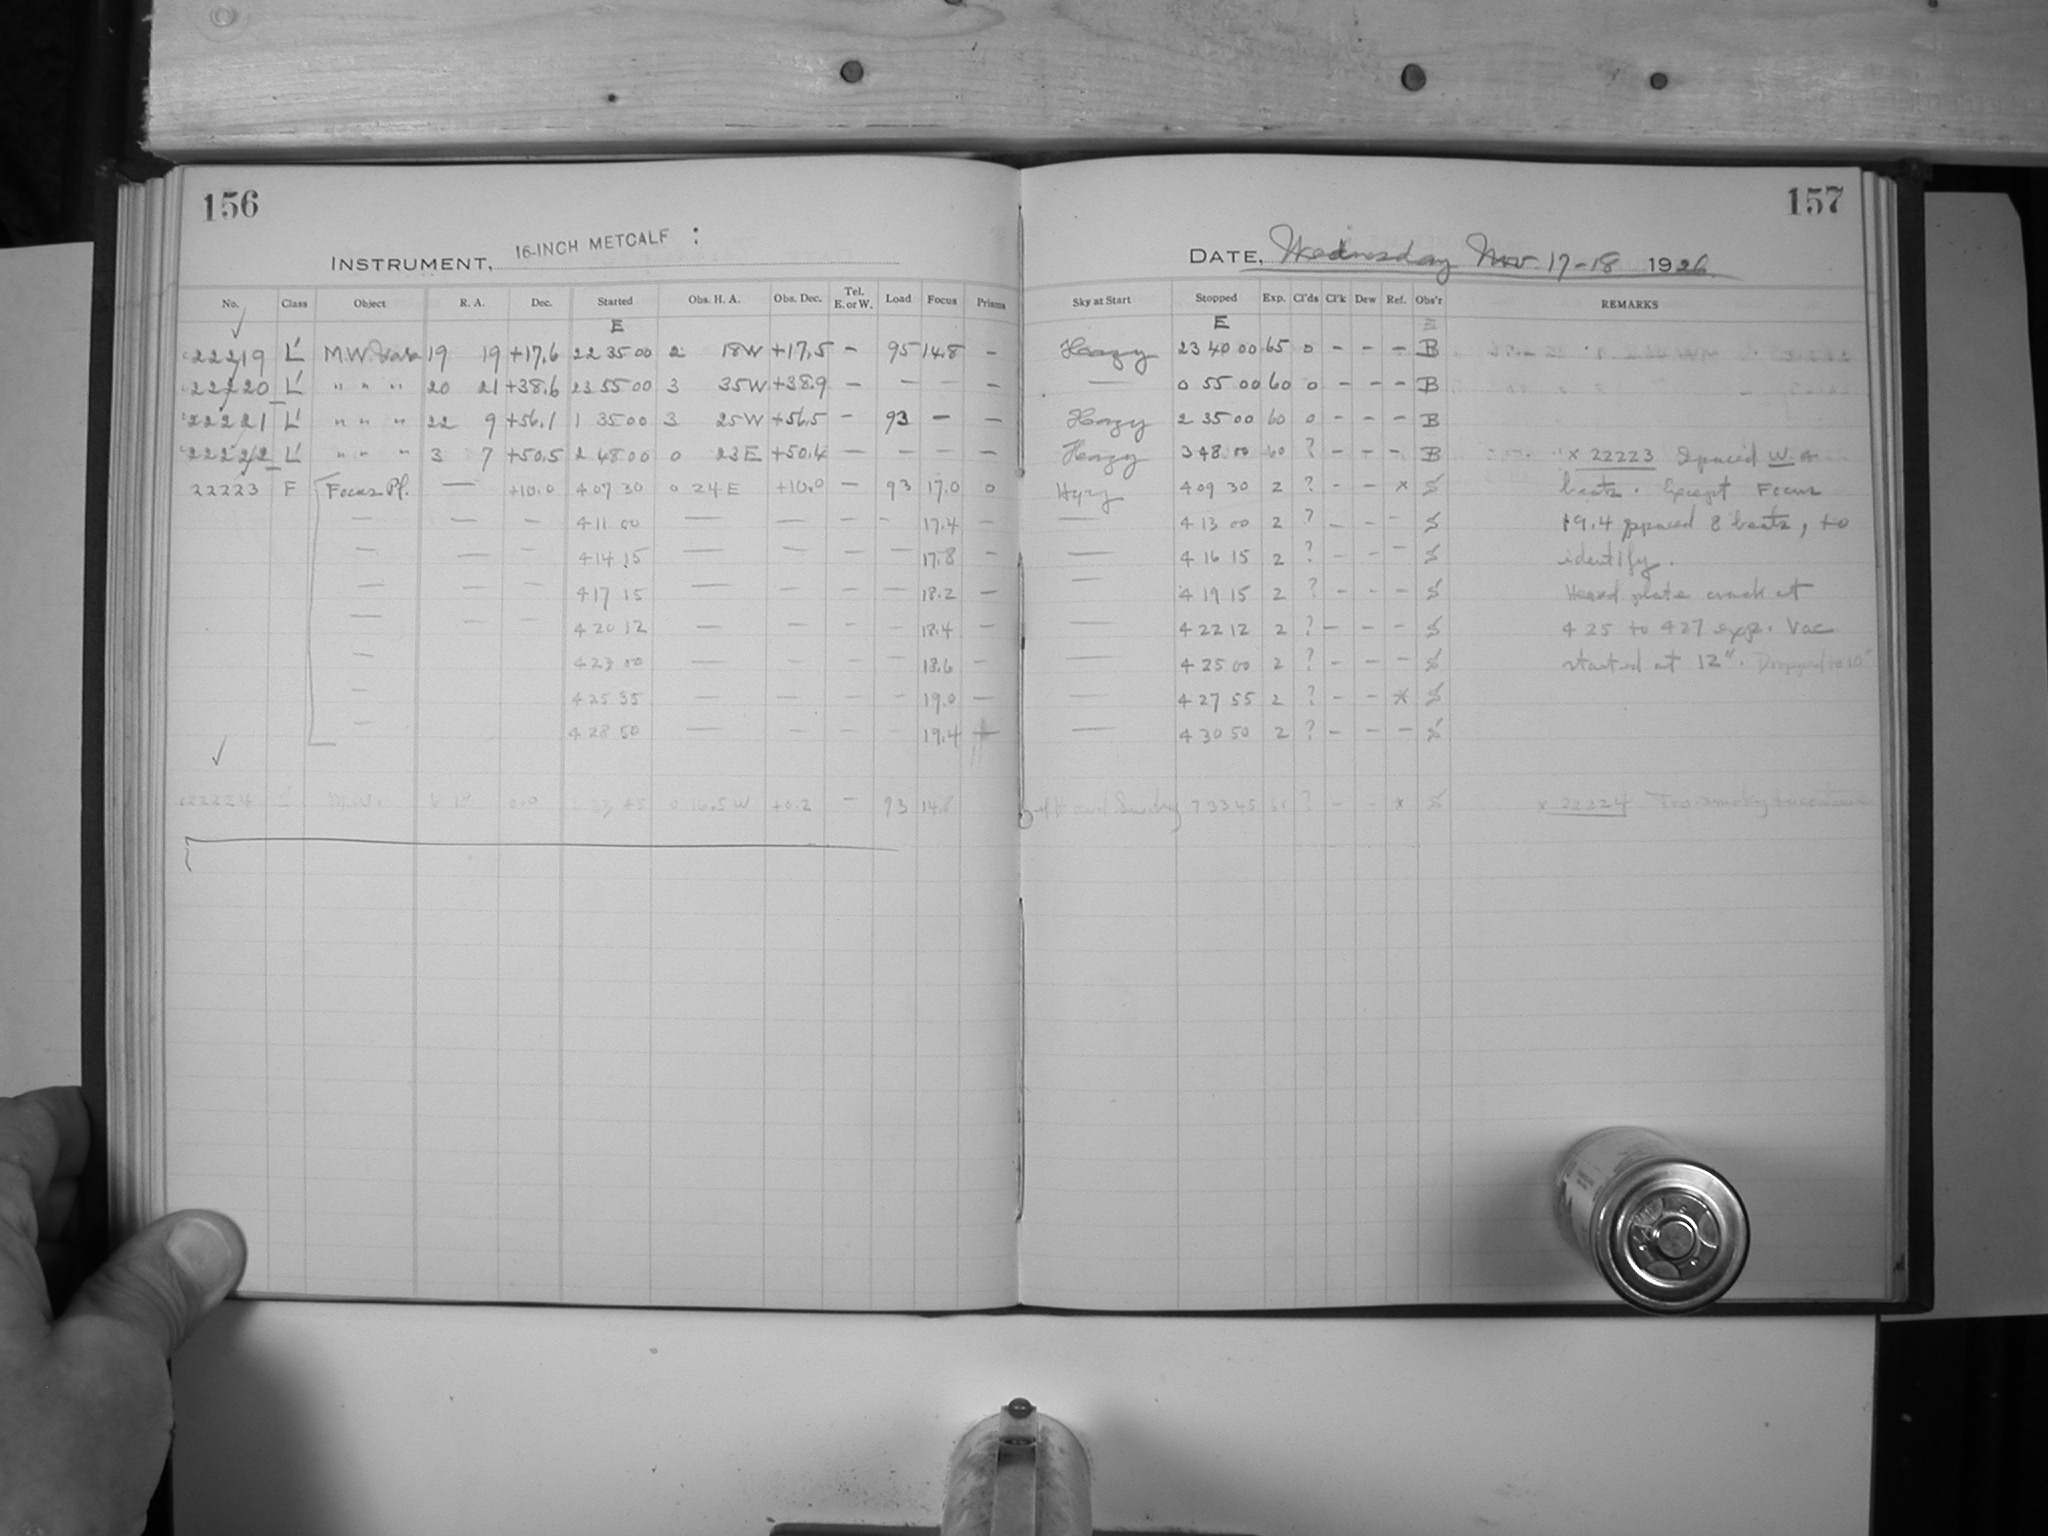 156
157
INSTRUMENT, 16-INCH METCALF :
DATE, Wednesday Nov 17-18 1926.
No. Class Object R. A. Dec. Started Obs. H. A. Obs. Dec. Tel. E. or W. Load Focus Prisms Sky at Start Stopped Exp. Cl'ds Cl'k Dew Ref. Obs'r REMARKS
E E
22219 L' M.W. 19 19 +17.6 22 35 00 2 18W +17.5 - 95 14.8 - Hazy 23 40 00 65 0 - - - B
22220 L' " " " 20 21 +38.6 23 55 00 3 35W +38.9 - - - - — 0 55 00 60 0 - - - B
22221 L' " " " 22 9 +56.1 1 35 00 3 25W +56.5 - 93 - - Hazy 2 35 00 60 0 - - - B
22222 L' " " " 3 7 +50.5 2 48 00 0 23E +50.4 - - - - Hazy 3 48 00 60 ? - - - B x 22223 Spaced W. 4
22223 F Focus Pl. — +10.0 4 07 30 0 24E +10.0 - 93 17.0 0 Hazy 4 09 30 2 ? - - x S beats. Except Focus
— — — 4 11 00 — — - - 17.4 - — 4 13 00 2 ? - - - S 19.4 spaced 8 beats, to
— — — 4 14 15 — — - - 17.8 - — 4 16 15 2 ? - - - S identify.
— — — 4 17 15 — — - - 18.2 - — 4 19 15 2 ? - - - S Heard plate crack at
— — — 4 20 12 — — - - 18.4 - — 4 22 12 2 ? - - - S 4 25 to 4 27 exp. Vac
— 4 23 00 — — - - 18.6 - — 4 25 00 2 ? - - - S started at 12". Dropped to 10"
— 4 25 55 — — - - 19.0 - — 4 27 55 2 ? - - x S
— 4 28 50 — — - - 19.4 - — 4 30 50 2 ? - - - S
22224 L' M.W. 6 18 0.0 0 16.5 W +0.2 - 93 14.8 and Smoky 7 33 45 ? - - x S x 22224 Too smoky to continue